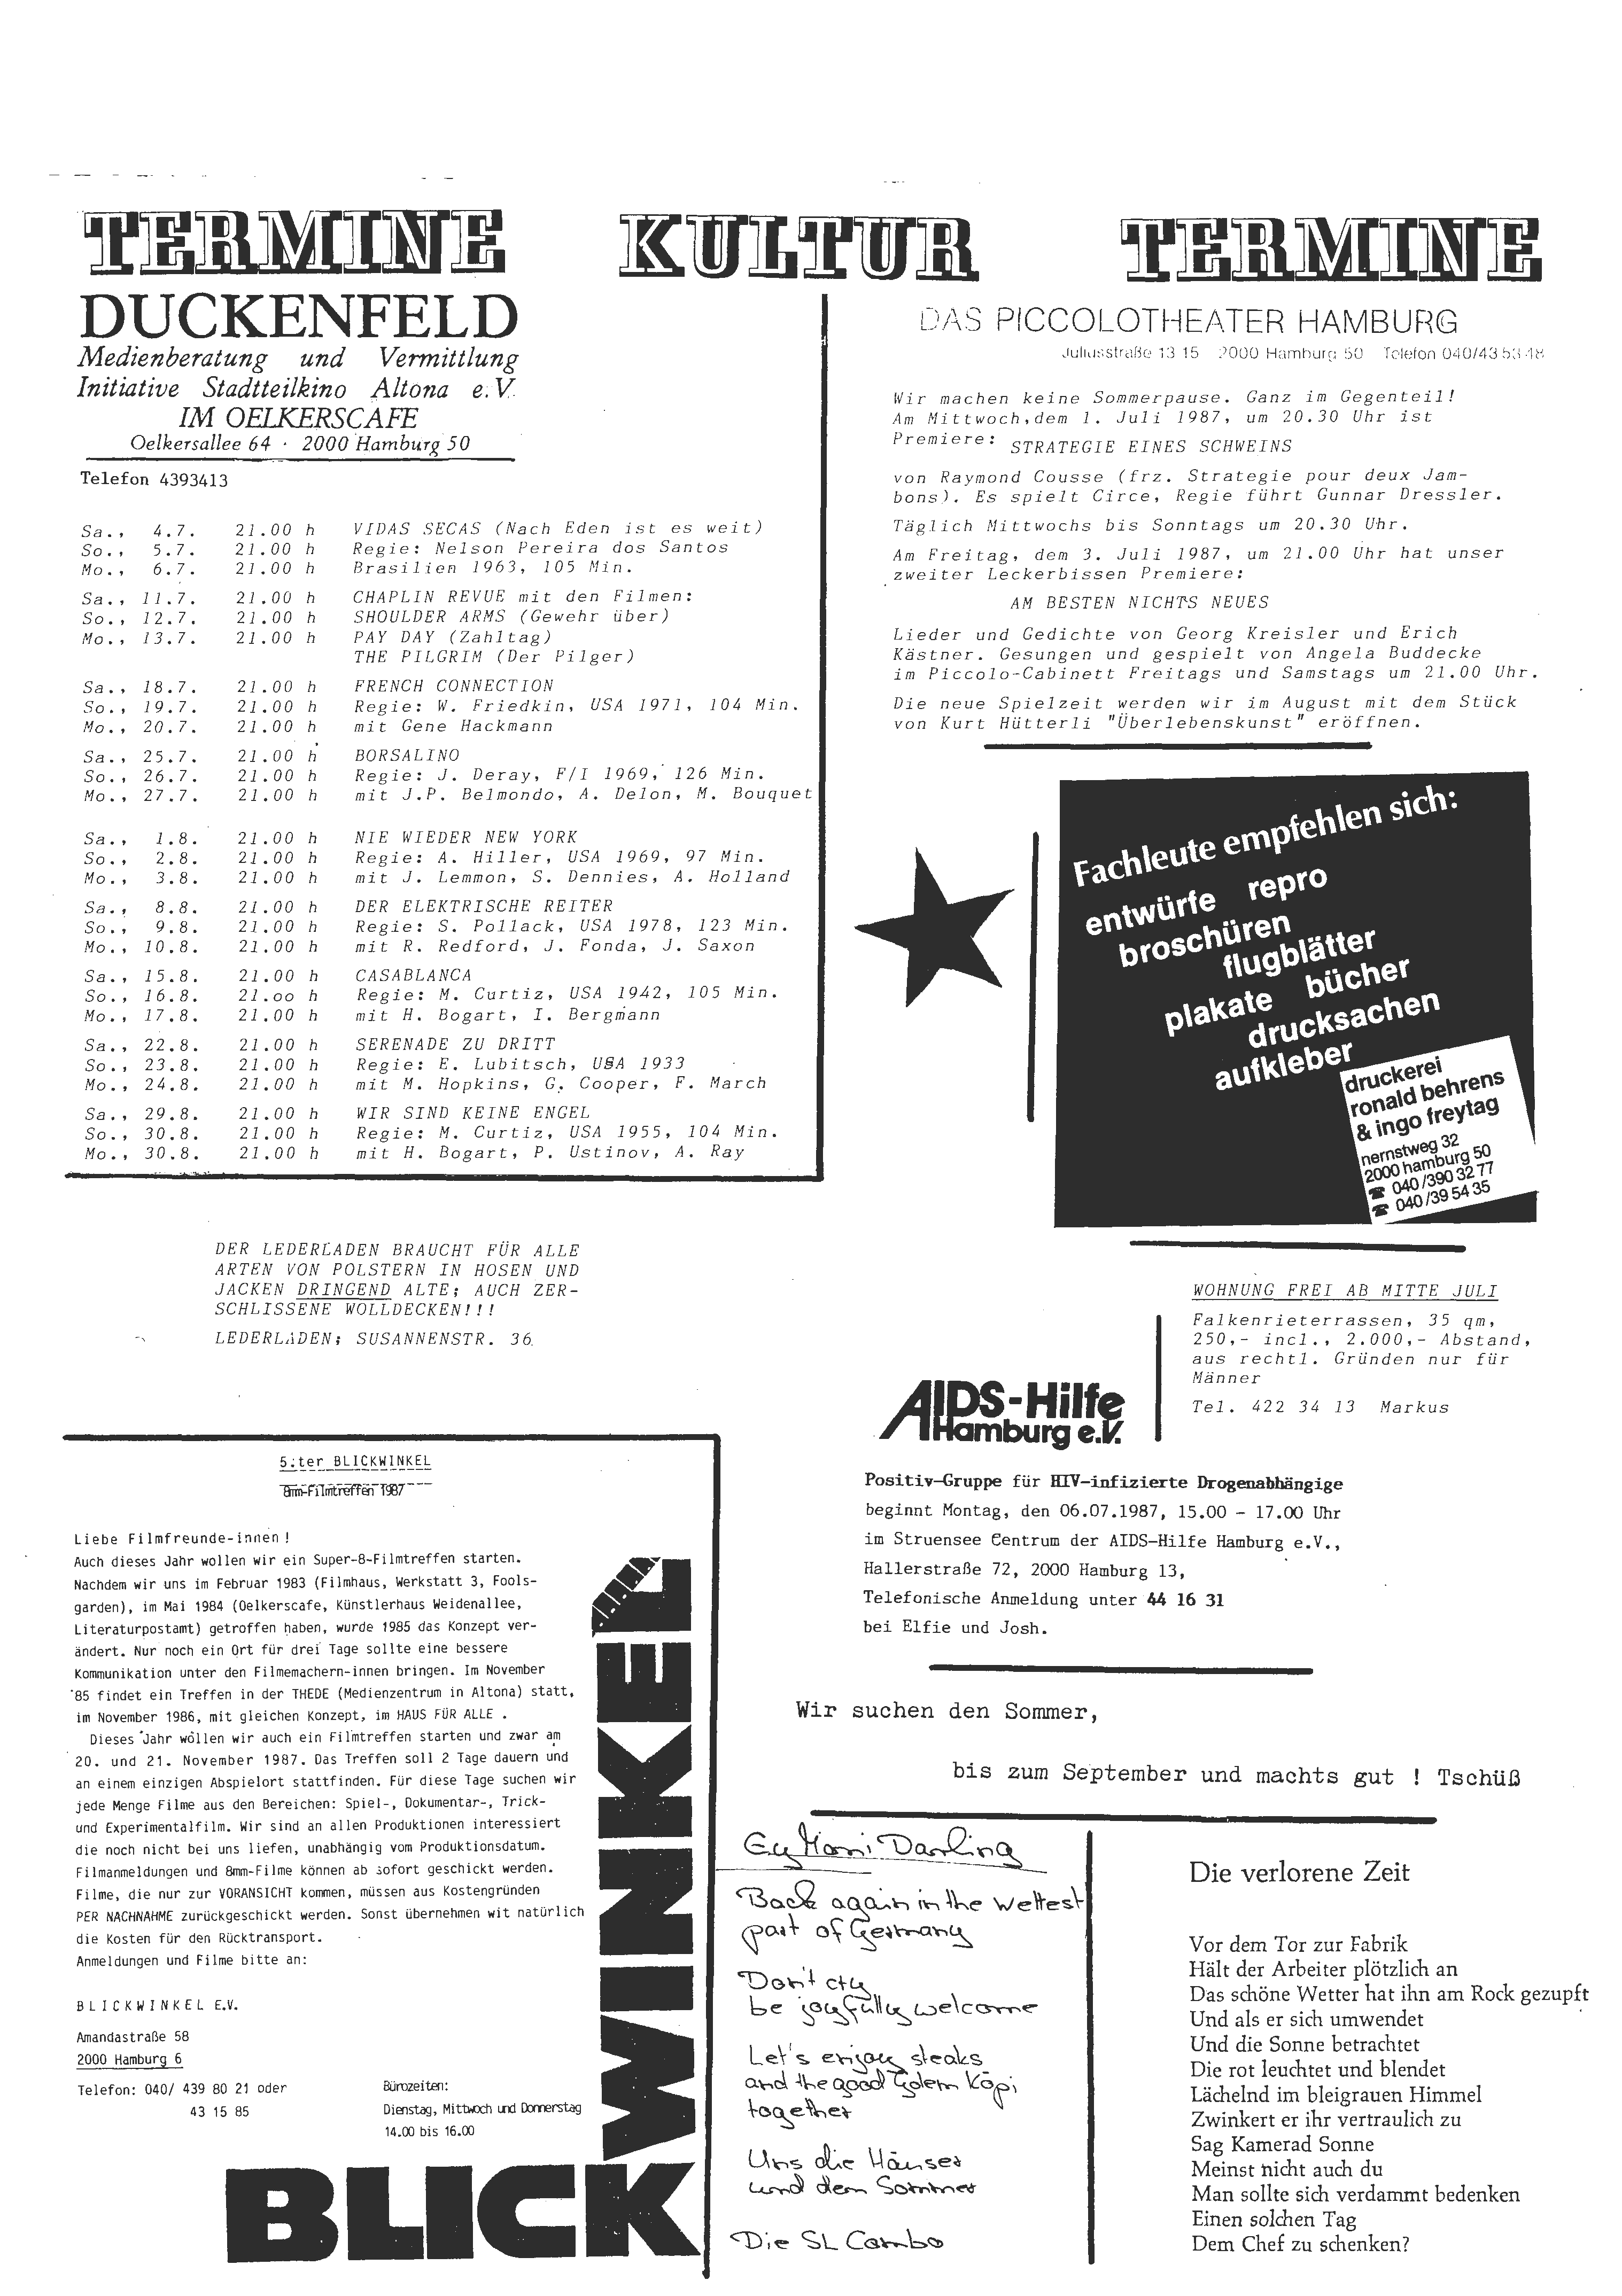 TERMINE KULTUR TERMINE
DUCKENFELD
Medienberatung und Vermittlung
Initiative Stadtteilkino Altona e.V.
IM OELKERSCAFE
Oelkersallee 64 · 2000 Hamburg 50
Telefon 4393413
Sa., 4.7. 21.00 h VIDAS SECAS (Nach Eden ist es weit)
So., 5.7. 21.00 h Regie: Nelson Pereira dos Santos
Mo., 6.7. 21.00 h Brasilien 1963, 105 Min.
Sa., 11.7. 21.00 h CHAPLIN REVUE mit den Filmen:
So., 12.7. 21.00 h SHOULDER ARMS (Gewehr über)
Mo., 13.7. 21.00 h PAY DAY (Zahltag)
THE PILGRIM (Der Pilger)
Sa., 18.7. 21.00 h FRENCH CONNECTION
So., 19.7. 21.00 h Regie: W. Friedkin, USA 1971, 104 Min.
Mo., 20.7. 21.00 h mit Gene Hackmann
Sa., 25.7. 21.00 h BORSALINO
So., 26.7. 21.00 h Regie: J. Deray, F/I 1969, 126 Min.
Mo., 27.7. 21.00 h mit J.P. Belmondo, A. Delon, M. Bouquet
Sa., 1.8. 21.00 h NIE WIEDER NEW YORK
So., 2.8. 21.00 h Regie: A. Hiller, USA 1969, 97 Min.
Mo., 3.8. 21.00 h mit J. Lemmon, S. Dennies, A. Holland
Sa., 8.8. 21.00 h DER ELEKTRISCHE REITER
So., 9.8. 21.00 h Regie: S. Pollack, USA 1978, 123 Min.
Mo., 10.8. 21.00 h mit R. Redford, J. Fonda, J. Saxon
Sa., 15.8. 21.00 h CASABLANCA
So., 16.8. 21.oo h Regie: M. Curtiz, USA 1942, 105 Min.
Mo., 17.8. 21.00 h mit H. Bogart, I. Bergmann
Sa., 22.8. 21.00 h SERENADE ZU DRITT
So., 23.8. 21.00 h Regie: E. Lubitsch, USA 1933
Mo., 24.8. 21.00 h mit M. Hopkins, G. Cooper, F. March
Sa., 29.8. 21.00 h WIR SIND KEINE ENGEL
So., 30.8. 21.00 h Regie: M. Curtiz, USA 1955, 104 Min.
Mo., 30.8. 21.00 h mit H. Bogart, P. Ustinov, A. Ray
DAS PICCOLOTHEATER HAMBURG
Juliusstraße 13 15 2000 Hamburg 50 Telefon 040/43 53 48
Wir machen keine Sommerpause. Ganz im Gegenteil!
Am Mittwoch,dem 1. Juli 1987, um 20.30 Uhr ist
Premiere: STRATEGIE EINES SCHWEINS
von Raymond Cousse (frz. Strategie pour deux Jam-
bons). Es spielt Circe, Regie führt Gunnar Dressler.
Täglich Mittwochs bis Sonntags um 20.30 Uhr.
Am Freitag, dem 3. Juli 1987, um 21.00 Uhr hat unser
zweiter Leckerbissen Premiere:
AM BESTEN NICHTS NEUES
Lieder und Gedichte von Georg Kreisler und Erich
Kästner. Gesungen und gespielt von Angela Buddecke
im Piccolo-Cabinett Freitags und Samstags um 21.00 Uhr.
Die neue Spielzeit werden wir im August mit dem Stück
von Kurt Hütterli "Überlebenskunst" eröffnen.
Fachleute empfehlen sich:
entwürfe repro
broschüren
flugblätter
plakate bücher
drucksachen
aufkleber
druckerei
ronald behrens
& ingo freytag
nernstweg 32
2000 hamburg 50
☎ 040/390 32 77
☎ 040/39 54 35
DER LEDERLADEN BRAUCHT FÜR ALLE
ARTEN VON POLSTERN IN HOSEN UND
JACKEN DRINGEND ALTE; AUCH ZER-
SCHLISSENE WOLLDECKEN!!!
LEDERLADEN; SUSANNENSTR. 36.
WOHNUNG FREI AB MITTE JULI
Falkenrieterrassen, 35 qm,
250,- incl., 2.000,- Abstand,
aus rechtl. Gründen nur für
Männer
Tel. 422 34 13 Markus
AIDS-Hilfe
Hamburg e.V.
Positiv-Gruppe für HIV-infizierte Drogenabhängige
beginnt Montag, den 06.07.1987, 15.00 - 17.00 Uhr
im Struensee Centrum der AIDS-Hilfe Hamburg e.V.,
Hallerstraße 72, 2000 Hamburg 13,
Telefonische Anmeldung unter 44 16 31
bei Elfie und Josh.
5.ter BLICKWINKEL
8mm-Filmtreffen 1987
Liebe Filmfreunde-innen!
Auch dieses Jahr wollen wir ein Super-8-Filmtreffen starten.
Nachdem wir uns im Februar 1983 (Filmhaus, Werkstatt 3, Fools-
garden), im Mai 1984 (Oelkerscafe, Künstlerhaus Weidenallee,
Literaturpostamt) getroffen haben, wurde 1985 das Konzept ver-
ändert. Nur noch ein Ort für drei Tage sollte eine bessere
Kommunikation unter den Filmemachern-innen bringen. Im November
'85 findet ein Treffen in der THEDE (Medienzentrum in Altona) statt,
im November 1986, mit gleichen Konzept, im HAUS FÜR ALLE .
Dieses Jahr wollen wir auch ein Filmtreffen starten und zwar am
20. und 21. November 1987. Das Treffen soll 2 Tage dauern und
an einem einzigen Abspielort stattfinden. Für diese Tage suchen wir
jede Menge Filme aus den Bereichen: Spiel-, Dokumentar-, Trick-
und Experimentalfilm. Wir sind an allen Produktionen interessiert
die noch nicht bei uns liefen, unabhängig vom Produktionsdatum.
Filmanmeldungen und 8mm-Filme können ab sofort geschickt werden.
Filme, die nur zur VORANSICHT kommen, müssen aus Kostengründen
PER NACHNAHME zurückgeschickt werden. Sonst übernehmen wit natürlich
die Kosten für den Rücktransport.
Anmeldungen und Filme bitte an:
BLICKWINKEL E.V.
Amandastraße 58
2000 Hamburg 6
Telefon: 040/ 439 80 21 oder
43 15 85
Bürozeiten:
Dienstag, Mittwoch und Donnerstag
14.00 bis 16.00
BLICKWINKEL
Wir suchen den Sommer,
bis zum September und machts gut ! Tschüß
Ey Moni Darling
Back again in the wettest
part of Germany
Don't cry
be joyfully welcome
Let's enjoy steaks
and the good golem Köpi
together
Uns die Häuser
und dem Sommer
Die SL Combo
Die verlorene Zeit
Vor dem Tor zur Fabrik
Hält der Arbeiter plötzlich an
Das schöne Wetter hat ihn am Rock gezupft
Und als er sich umwendet
Und die Sonne betrachtet
Die rot leuchtet und blendet
Lächelnd im bleigrauen Himmel
Zwinkert er ihr vertraulich zu
Sag Kamerad Sonne
Meinst nicht auch du
Man sollte sich verdammt bedenken
Einen solchen Tag
Dem Chef zu schenken?